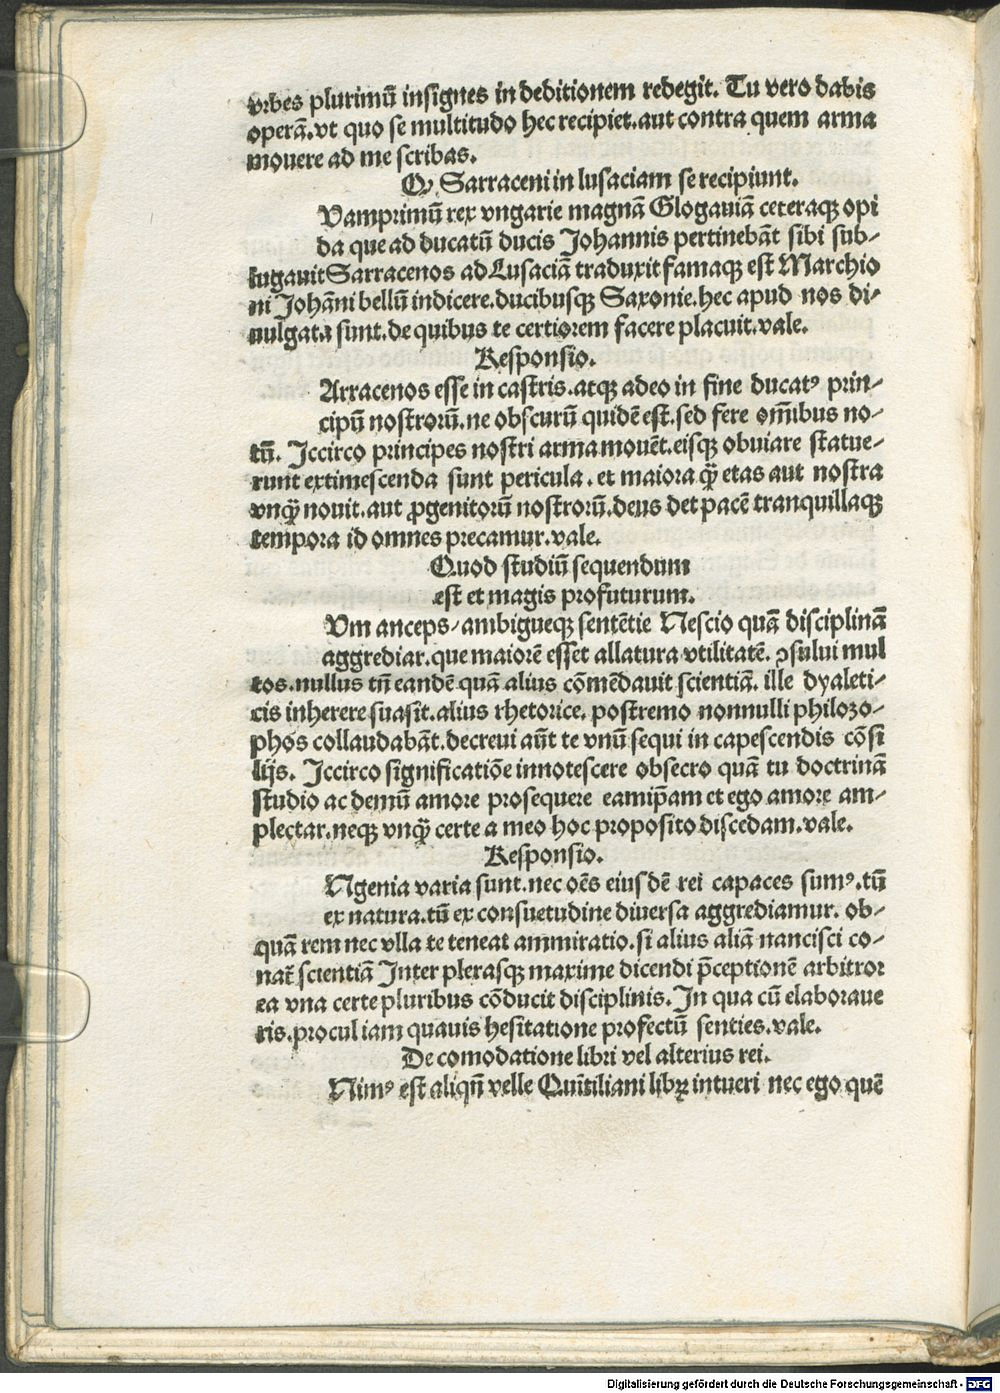 vrbes plurimū insignes in deditionem redegit. Tu vero dabis
operā. vt quo se multitudo hec recipiet. aut contra quem arma
mouere ad me scribas.
Q Sarraceni in lusaciam se recipiunt.
Vamprimū rex vngarie magnā Glogauiā ceteraqꝫ opi
da que ad ducatū ducis Johannis pertinebāt sibi sub⸗
iugauit Sarracenos ad Lusaciā traduxit famaqꝫ est Marchio
ni Johāni bellū indicere. ducibusqꝫ Saxonie. hec apud nos di⸗
uulgata sunt. de quibus te certiorem facere placuit. vale.
Responsio.
Arracenos esse in castris. atqꝫ adeo in fine ducatꝰ prin⸗
cipū nostrorū. ne obscurū quidē est. sed fere om̄ibus no⸗
tū. Jccirco principes nostri arma mouēt. eisqꝫ obuiare statue⸗
runt extimescenda sunt pericula. et maiora qꝫ̄ etas aut nostra
vnqꝫ̄ nouit. aut ꝓgenitorū nostrorū. deus det pacē tranquillaqꝫ
tempora id omnes precamur. vale.
Quod studiū sequendum
est et magis profuturum.
Vm anceps/ ambigueqꝫ sentētie Nescio quā disciplinā
aggrediar. que maiorē esset allatura vtilitatē. ꝯsului mul
tos. nullus tn̄ eandē quā alius cōmēdauit scientiā. ille dyaleti⸗
cis inherere suasit. alius rhetorice. postremo nonnulli philozo⸗
phos collaudabāt. decreui aūt te vnū sequi in capescendis cōsi
lijs. Jccirco significatiōe innotescere obsecro quā tu doctrinā
studio ac demū amore prosequere eamip̄am et ego amore am⸗
plectar. neqꝫ vnqꝫ̄ certe a meo hoc proposito discedam. vale.
Responsio.
Ngenia varia sunt. nec oēs eiusdē rei capaces sumꝰ. tū
ex natura. tū ex consuetudine diuersa aggrediamur. ob⸗
quā rem nec vlla te teneat ammiratio. si alius aliā nancisci co⸗
nat᷑ scientiā Inter plerasqꝫ maxime dicendi p̄ceptionē arbitror
ea vna certe pluribus cōducit disciplinis. In qua cū elaboraue
ris. procul iam quauis hesitatione profectū senties. vale.
De comodatione libri vel alterius rei.
Nimꝰ est aliqn̄ velle Quītiliani libꝝ intueri nec ego quē
Digitalisierung gefördert durch die Deutsche Forschungsgemeinschaft - DFG